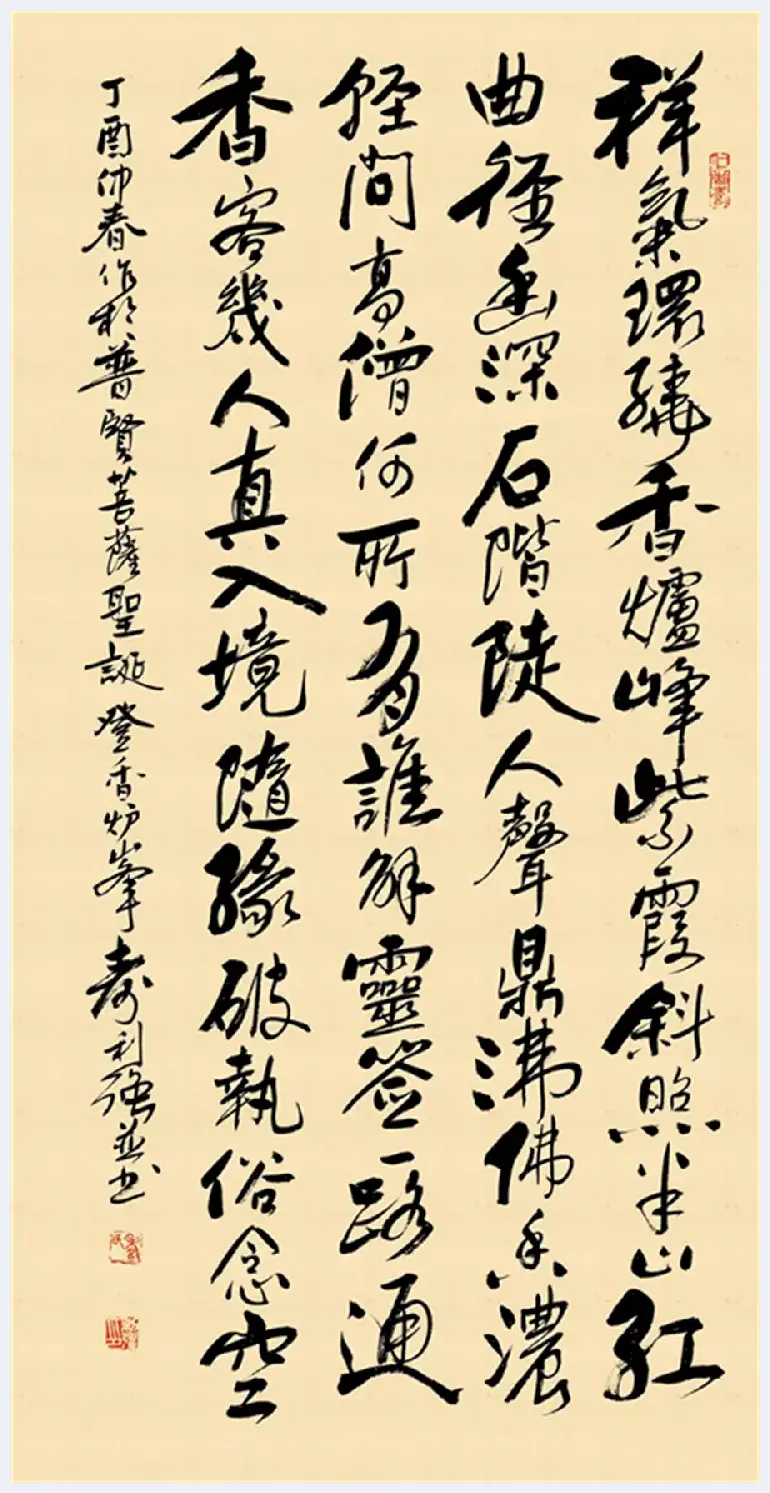 祥氣環繞香爐峰紫霞斜照半山紅
曲徑幽深石階陡人聲鼎沸佛香濃
輕問高僧何所有誰解靈签一路通
香客幾人真入境隨緣破執俗念空
丁酉仲春作於普賢菩薩聖誕登香炉峯寿利强並书